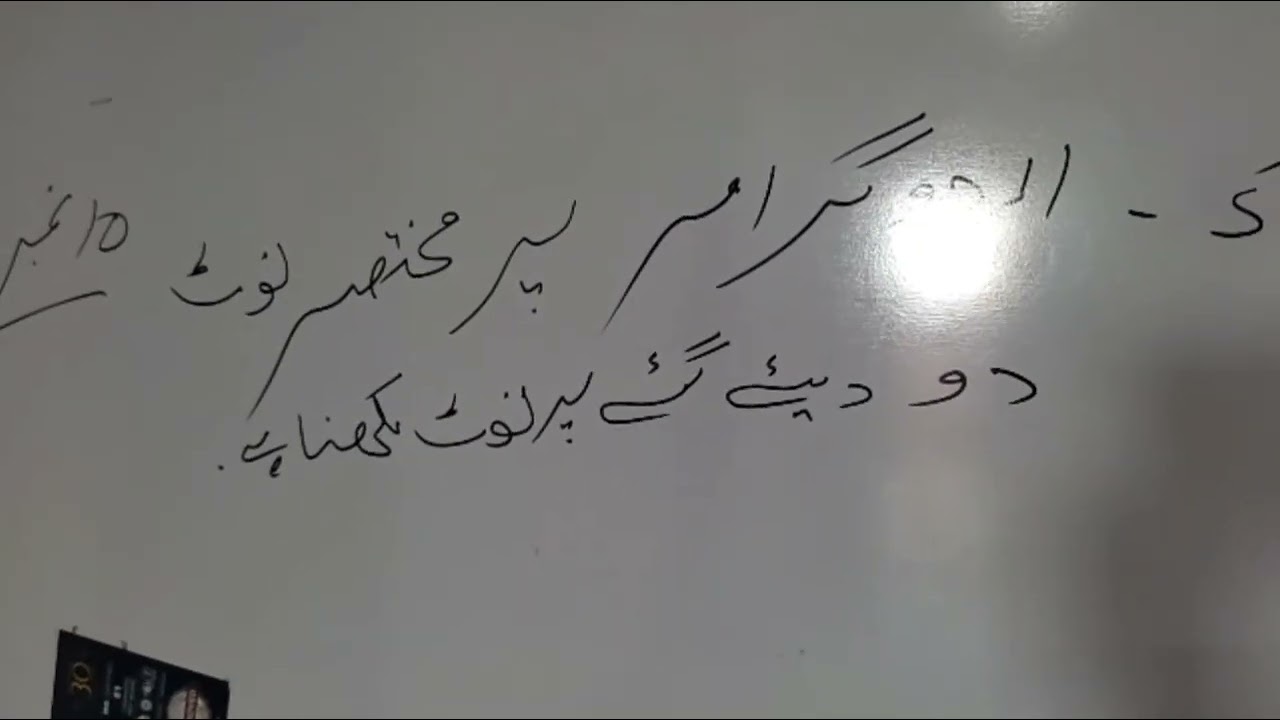 5 - اردو گرامر پر مختصر نوٹ 10 نمبر
دو دیئے گئے پر نوٹ لکھنا ہے.
30